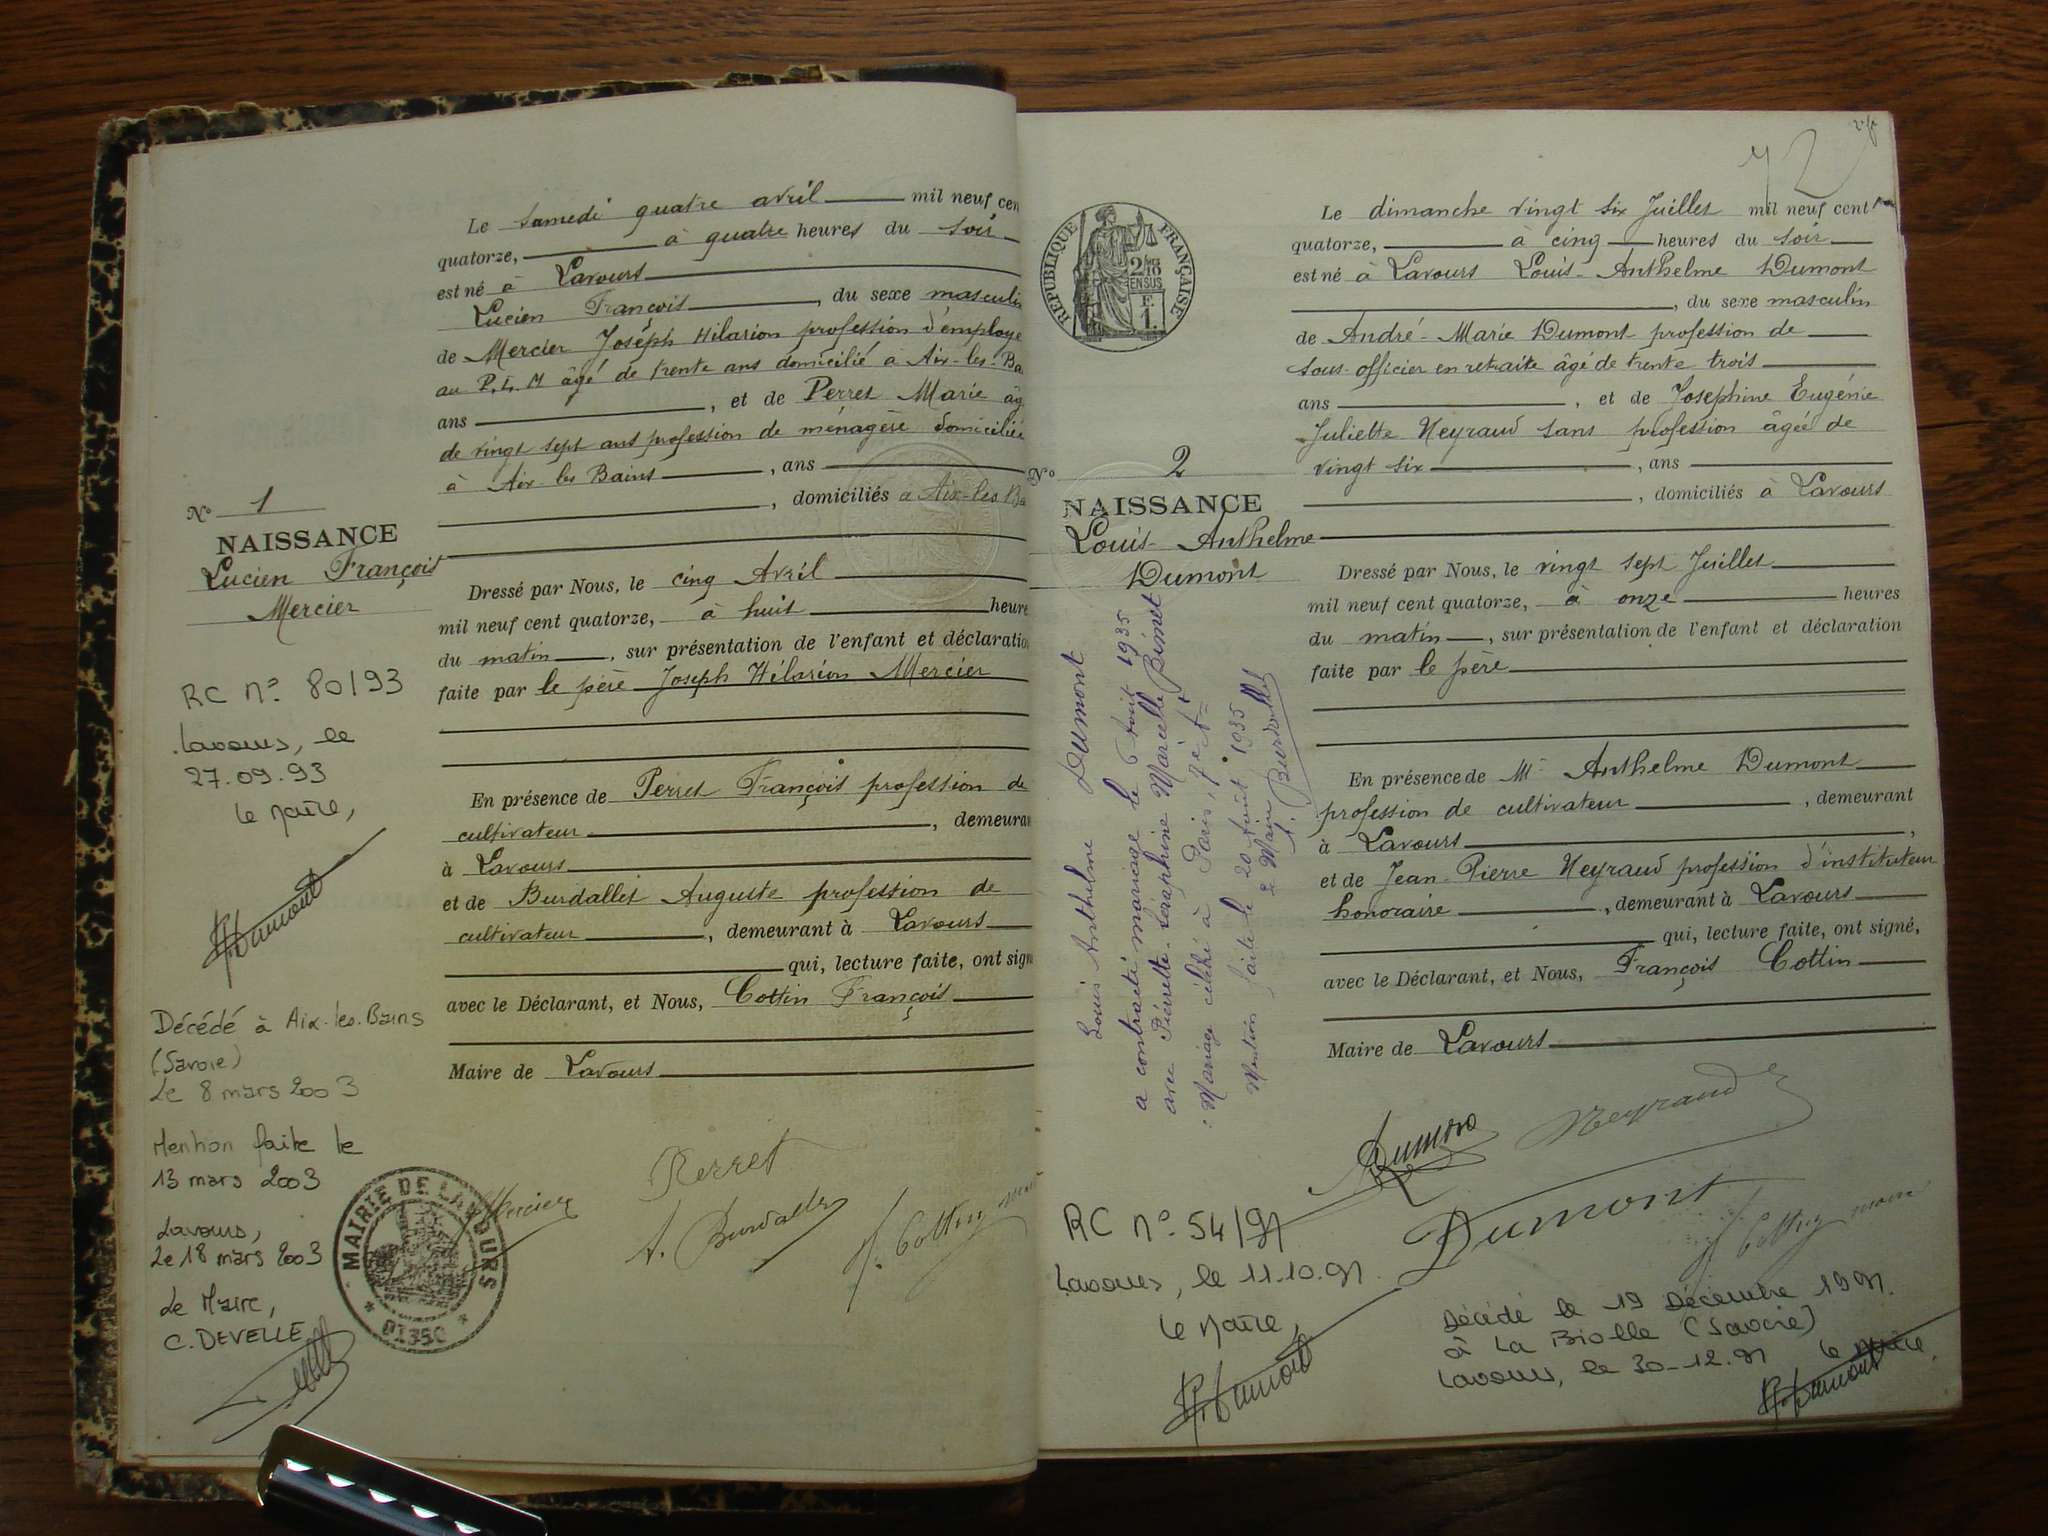 Le samedi quatre avril mil neuf cen
quatorze, à quatre heures du soir
est né à Lavours
Lucien François, du sexe masculin
de Mercier Joseph Hilarion profession d'employé
au P. L. M âgé de trente ans domicilié à Aix-les-Ba
ans, et de Perret Marie âg
de vingt sept ans profession de ménagère domiciliée
à Aix les Bains, ans
, domiciliés à Aix-les-Ba
N° 1
NAISSANCE
Lucien François
Mercier
Dressé par Nous, le cinq Avril
mil neuf cent quatorze, à huit heure
du matin, sur présentation de l'enfant et déclaration
faite par le père Joseph Hilarion Mercier
En présence de Perret François profession de
cultivateur, demeuran
à Lavours
et de Burdallet Auguste profession de
cultivateur, demeurant à Lavours
qui, lecture faite, ont sign
avec le Déclarant, et Nous, Cottin François
Maire de Lavours
RC n° 80/93
Lavours, le
27.09.93
le Maire,
Décédé à Aix-les-Bains
(Savoie)
Le 8 mars 2003
Mention faite le
13 mars 2003
Lavours,
Le 18 mars 2003
Le Maire,
C. DEVELLE
MAIRIE DE LAVOURS
01350
Mercier
Perret
A. Burdallet
F. Cottin maire
72
REPUBLIQUE FRANÇAISE
Le dimanche vingt six Juillet mil neuf cent
quatorze, à cinq heures du soir
est né à Lavours Louis-Anthelme Dumont
, du sexe masculin
de André-Marie Dumont profession de
sous-officier en retraite âgé de trente trois
ans, et de Josephine Eugénie
Juliette Neyraud sans profession âgée de
vingt six, ans
, domiciliés à Lavours
N° 2
NAISSANCE
Louis-Anthelme
Dumont
Dressé par Nous, le vingt sept Juillet
mil neuf cent quatorze, à onze heures
du matin, sur présentation de l'enfant et déclaration
faite par le père
En présence de Mr Anthelme Dumont
profession de cultivateur, demeurant
à Lavours,
et de Jean-Pierre Neyraud profession d'instituteur
honoraire, demeurant à Lavours
qui, lecture faite, ont signé,
avec le Déclarant, et Nous, François Cottin
Maire de Lavours
Louis Anthelme Dumont
a contracté mariage le 6 Août 1935
avec Pierrette Séraphine Marcelle Binet
Mariage célébré à Paris, 7e At
Mention faite le 20 Août 1935
Le Maire
A. Burdallet
Dumont
Neyraud
Dumont
F. Cottin maire
RC n° 54/91
Lavours, le 11.10.91
le Maire,
Décédé le 19 Décembre 1991
à La Biolle (Savoie)
Lavours, le 30-12.91 le Maire,